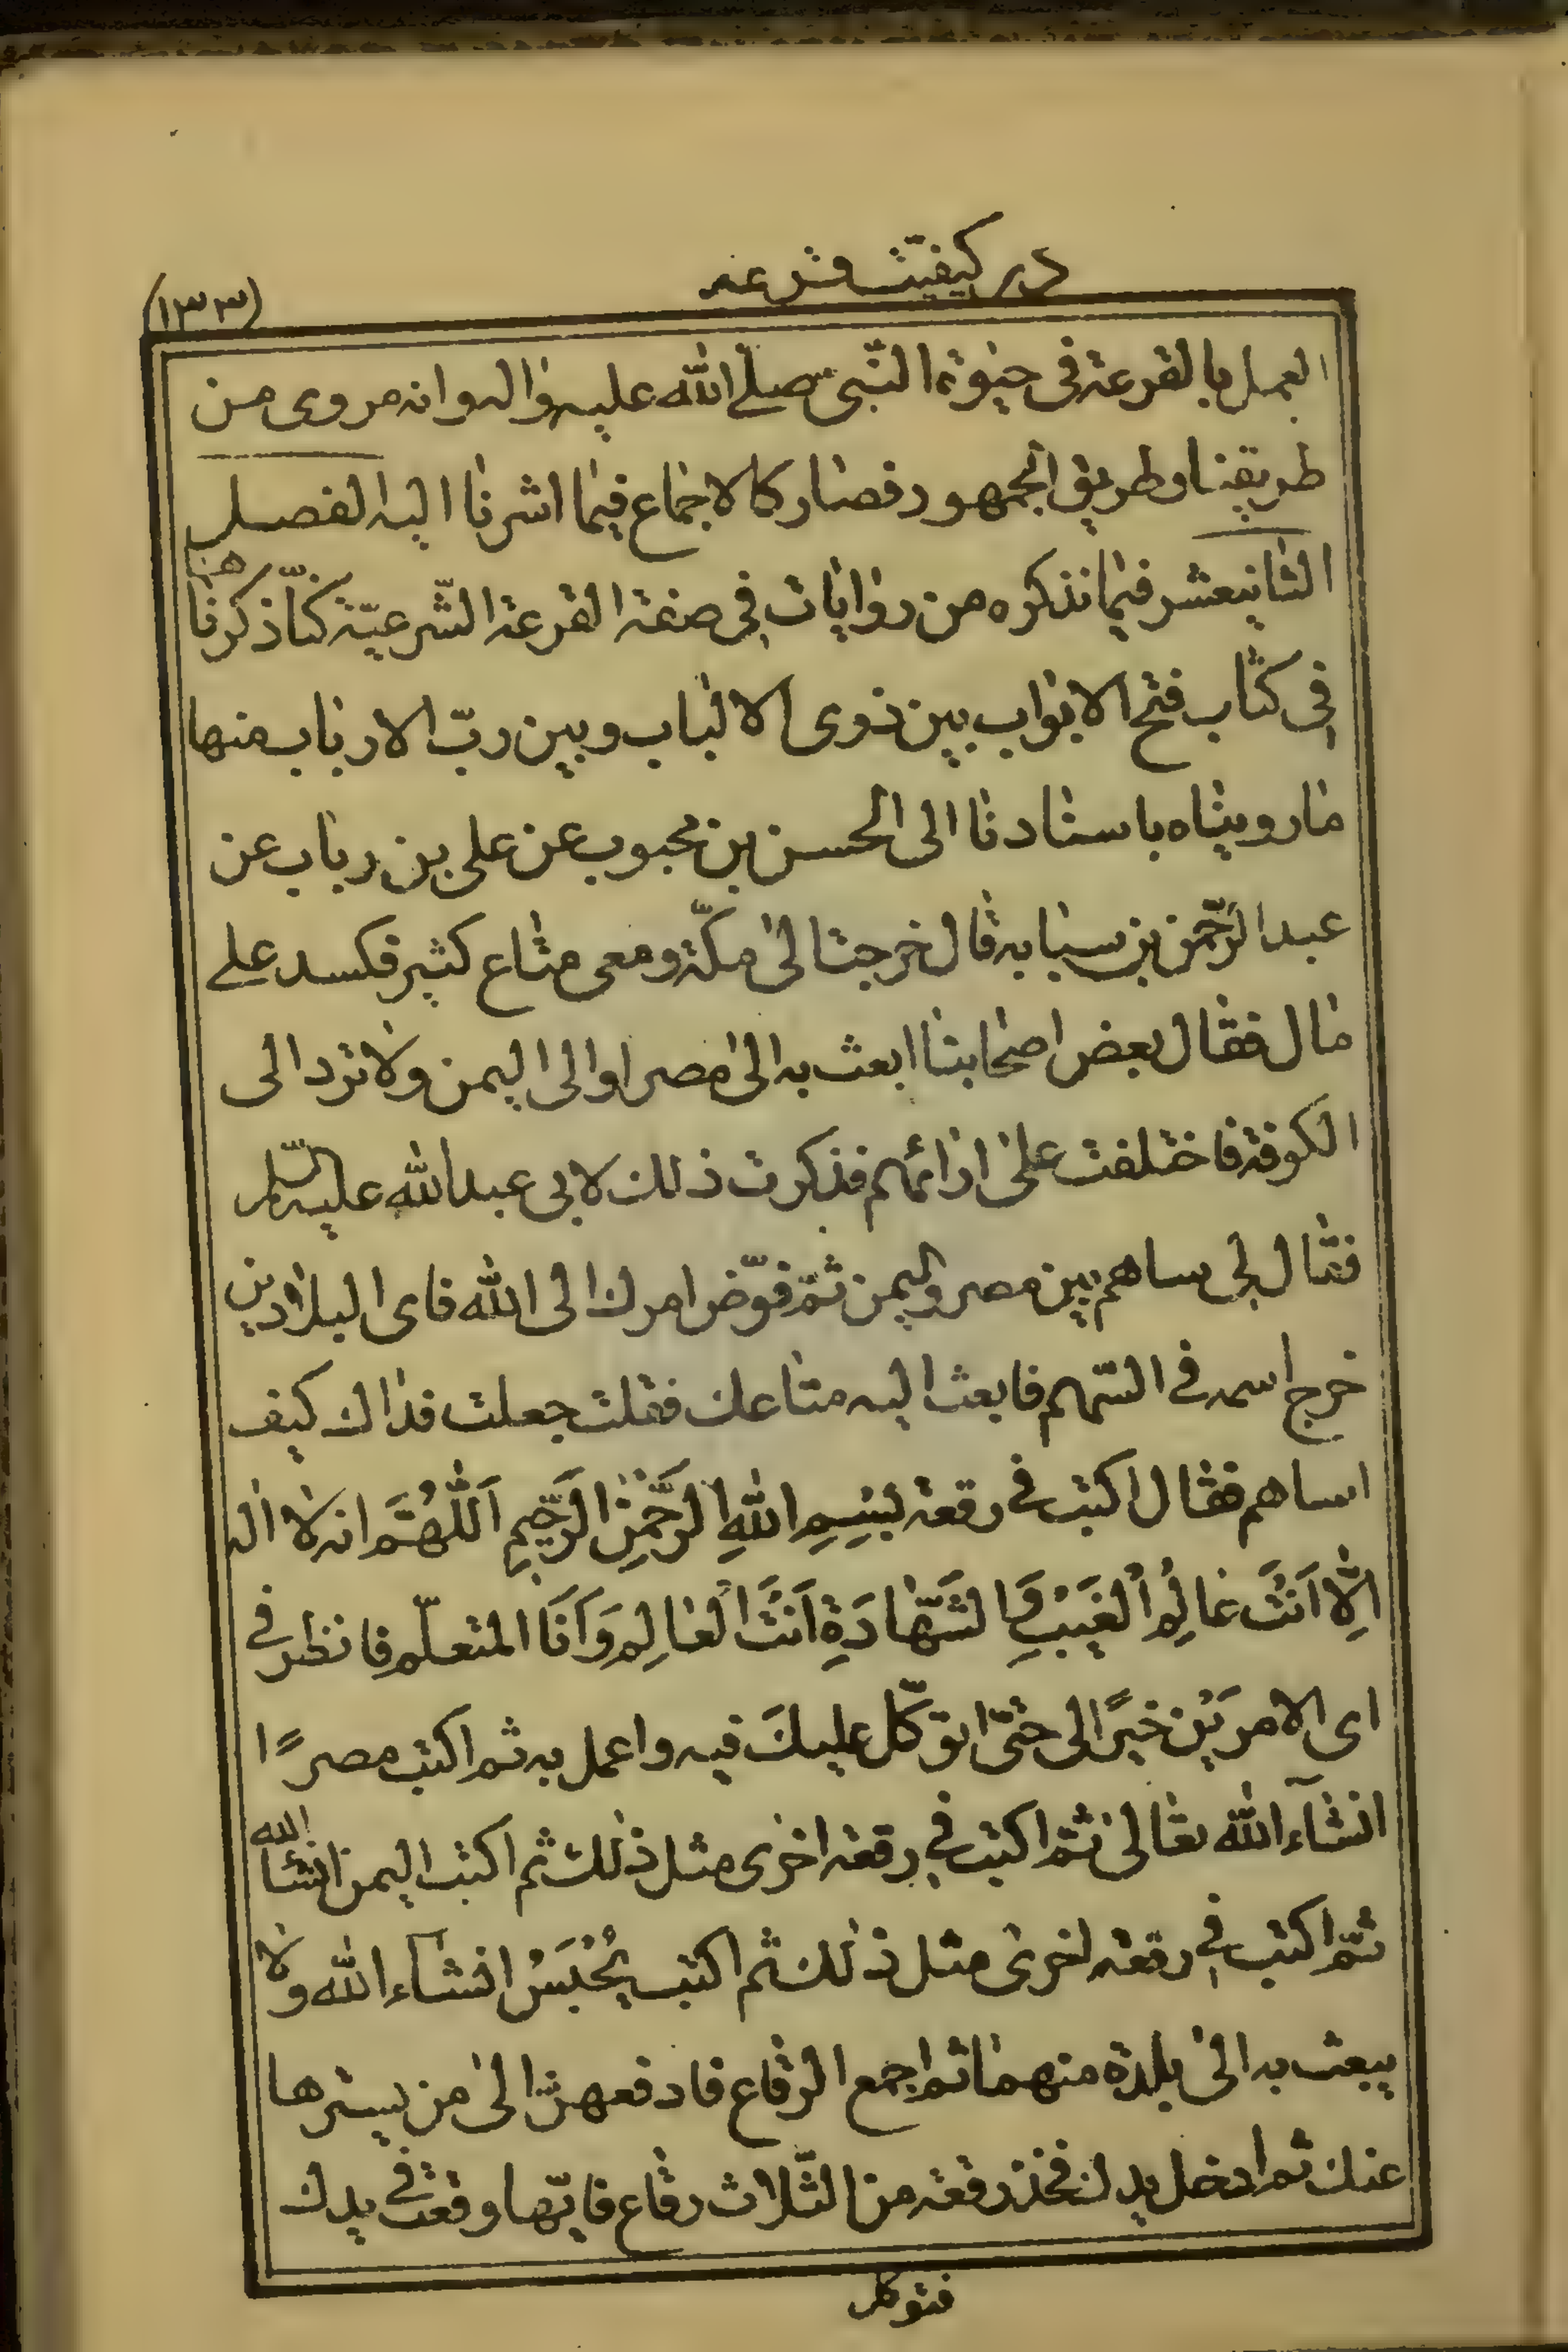 در کیفیت قرعه
(۱۳۳)
العمل بالقرعة فی حیوة النّبی صلی الله علیه واله وانه مروی من
طریقنا وطریق الجمهور فصار کالاجماع فیما اشرنا الیه الفصل
الثانیعشر فیما نذکره من روایات فی صفة القرعة الشّرعیّة کنّا ذکرناها
فی کتاب فتح الابواب بین ذوی الالباب وبین ربّ الارباب منها
ما رویناه باسنادنا الی الحسن بن محبوب عن علی بن رباب عن
عبد الرّحمن بن سیابه قال خرجت الی مکّة ومعی متاع کثیر فکسد علی
مال فقال بعض اصحابنا ابعث به الی مصر او الی الیمن ولا ترد الی
الکوفة فاختلفت علی ارائهم فذکرت ذلك لابی عبد الله علیه السّلم
فقال لی ساهم بین مصر والیمن ثمّ فوّض امرك الی الله فای البلادین
خرج اسمه فی السّهم فابعث الیه متاعك فقلت جعلت فداك کیف
اساهم فقال اکتب فی رقعة بِسْمِ اللهِ الرَّحْمٰنِ الرَّحِیمِ اَللّٰهُمَّ انه لا اله
اِلّا اَنْتَ عالِمُ الْغَیْبِ وَالشَّهادَةِ اَنْتَ الْعالِم وَاَنَا المتعلّم فانظر فی
ای الامرَیْن خیرًا لی حتّی اتوکّل علیكَ فیه واعمل به ثم اکتب مصرًا
انشآء الله تعالی ثمّ اکتب فی رقعة اخری مثل ذلك ثم اکتب الیمن انشاء الله
ثمّ اکتب فی رقعة اخری مثل ذلك ثم اکتب یُحْبَسُ انشاء الله ولا
یبعث به الی بلدة منهما ثم اجمع الرقاع فادفعهنّ الی من یسترها
عنك ثم ادخل یدك فخذ رقعة من الثّلاث رقاع فایّها وقعت فی یدك
فتوکل